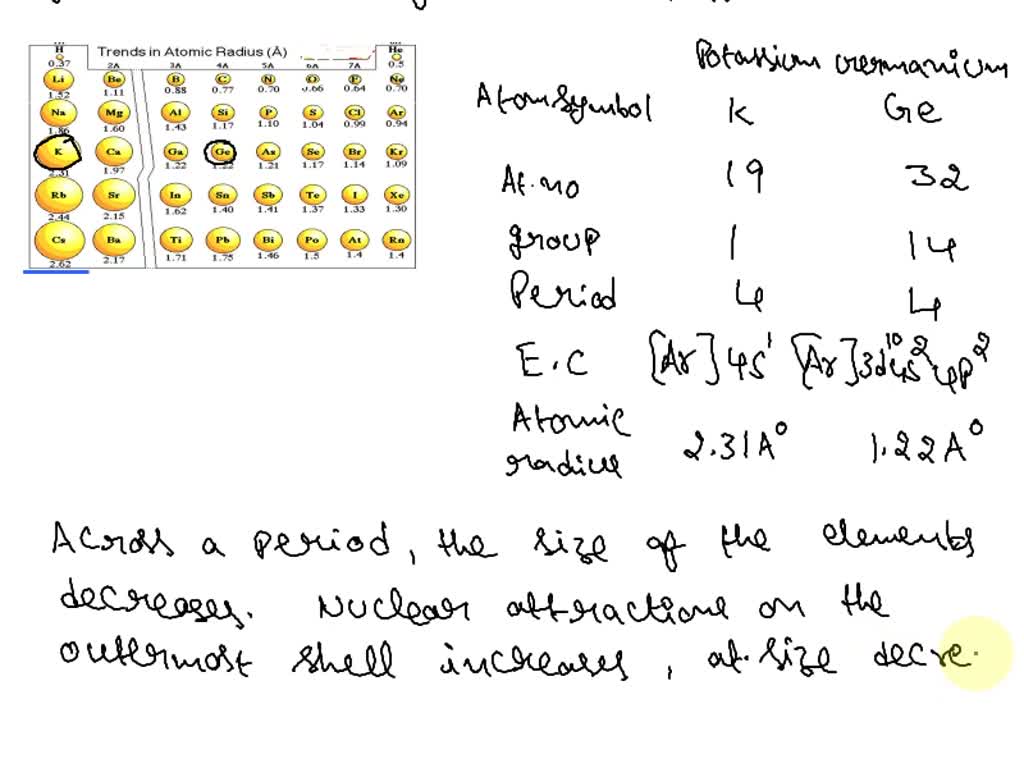 Trends in Atomic Radius (Å)
H He
0.37 0.5
2A 3A 4A 5A 6A 7A
Li Be B C N O F Ne
1.52 1.11 0.88 0.77 0.70 0.66 0.64 0.70
Na Mg Al Si P S Cl Ar
1.86 1.60 1.43 1.17 1.10 1.04 0.99 0.94
K Ca Ga Ge As Se Br Kr
2.31 1.97 1.22 1.22 1.21 1.17 1.14 1.09
Rb Sr In Sn Sb Te I Xe
2.44 2.15 1.62 1.40 1.41 1.37 1.33 1.30
Cs Ba Ti Pb Bi Po At Rn
2.62 2.17 1.71 1.75 1.46 1.5 1.4 1.4
Potassium Germanium
Atom symbol K Ge
At. no 19 32
group 1 14
Period 4 4
E.C [Ar] 4s¹ [Ar] 3d¹⁰4s² 4p²
Atomic
radius 2.31 A° 1.22 A°
Across a period, the size of the elements
decreases. Nuclear attraction on the
outermost shell increases, at. size decre.